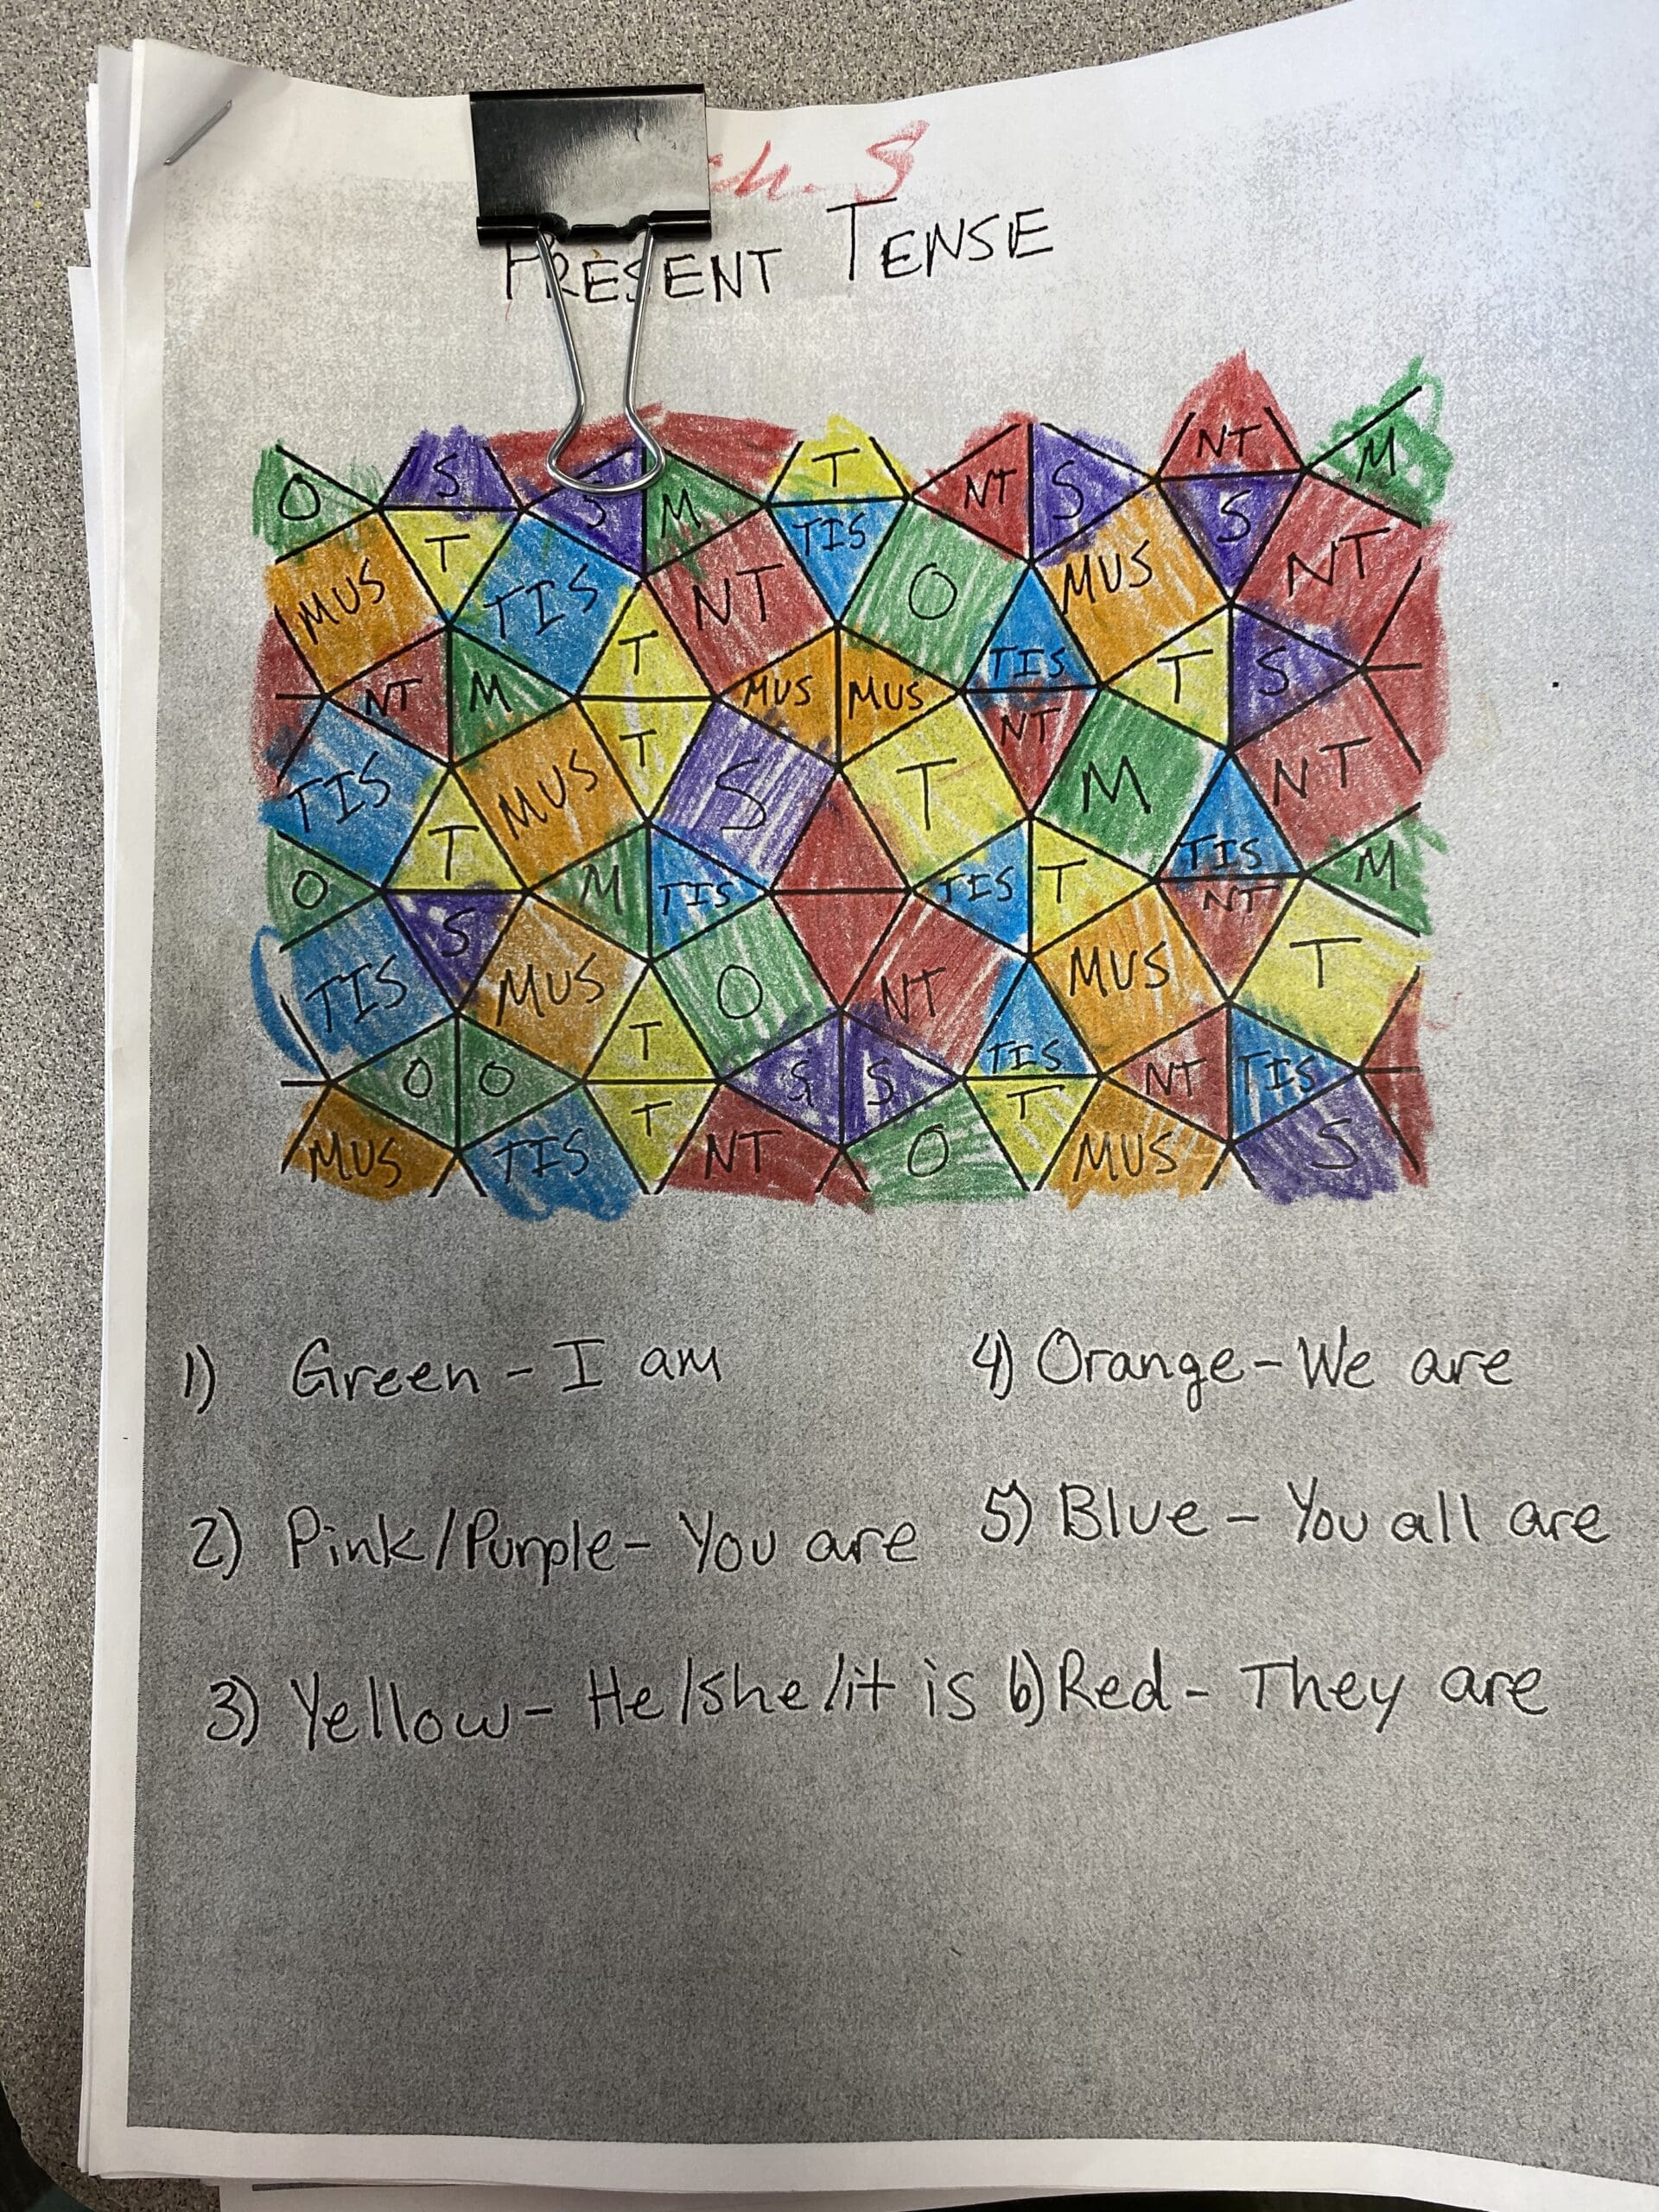 PRESENT TENSE
NT M
O S S M T NT S S
T TIS NT
MUS TIS NT O MUS
T TIS T S
NT M MUS MUS NT
TIS MUS T S T M NT
O T M TIS TIS T TIS M
S NT
TIS MUS O NT MUS T
O O T S S TIS NT TIS
MUS TIS T NT O T MUS S
1) Green - I am 4) Orange - We are
2) Pink/Purple - You are 5) Blue - You all are
3) Yellow - He/she/it is 6) Red - They are